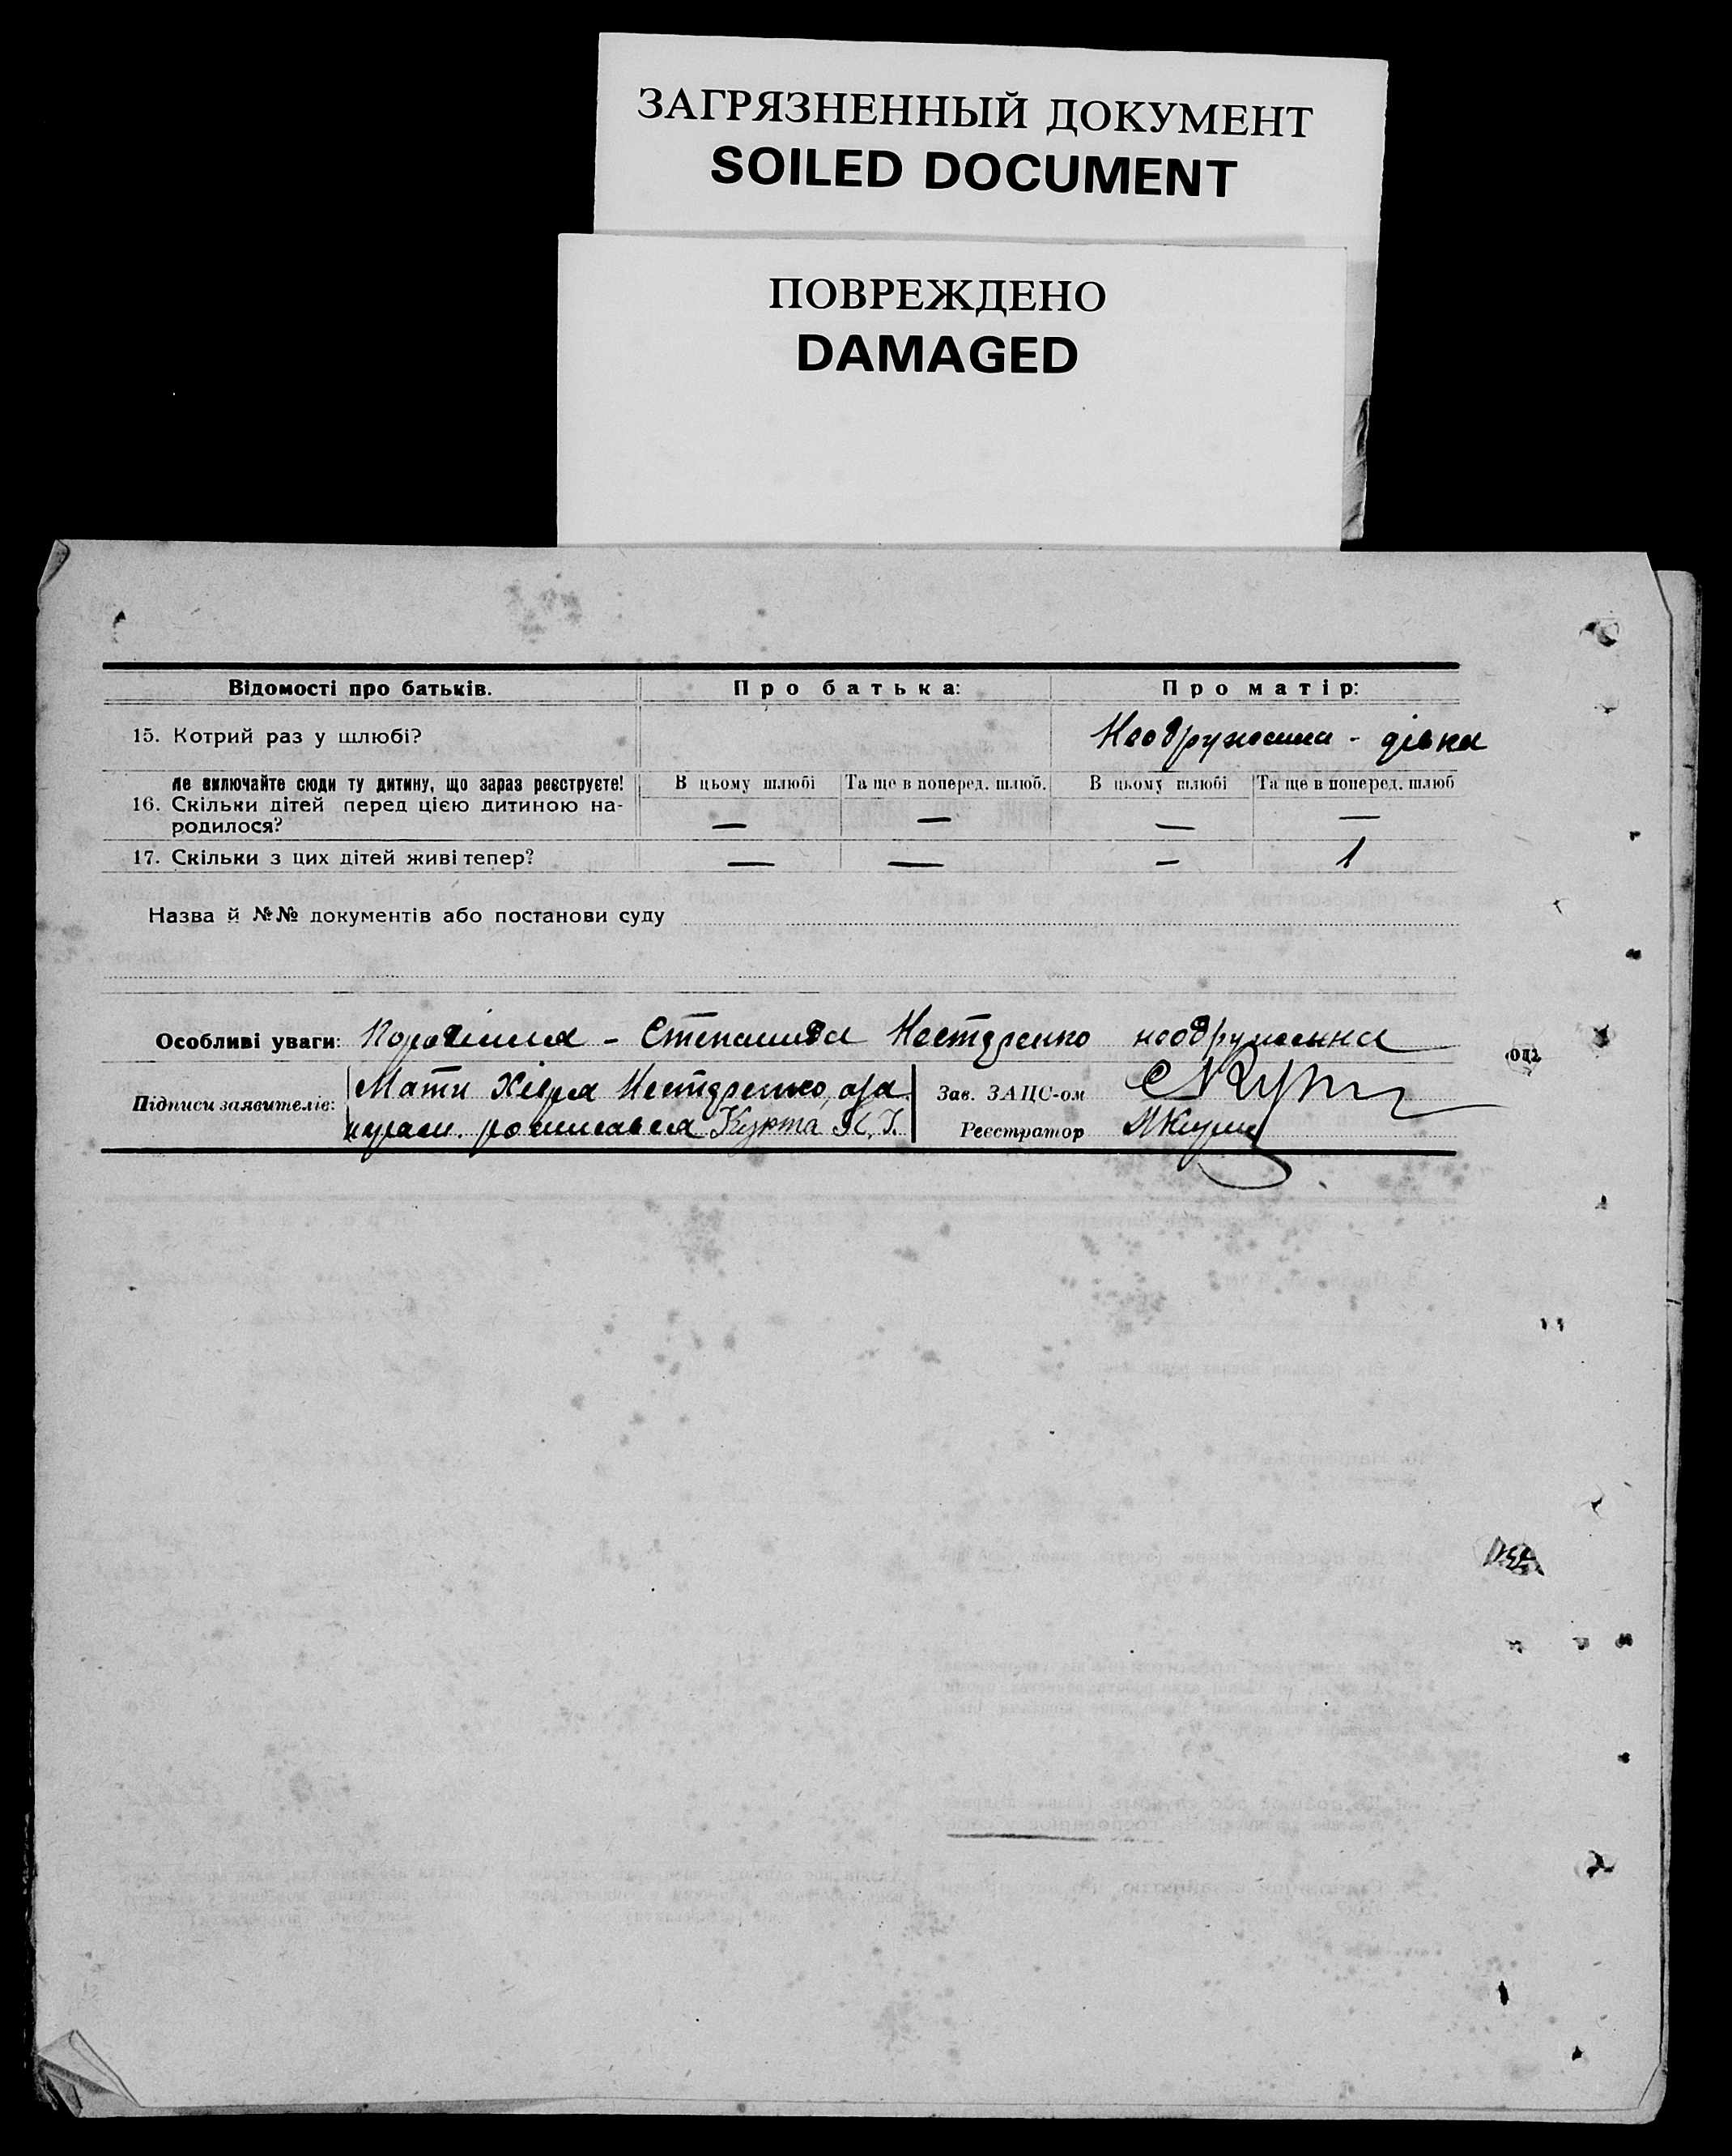 ЗАГРЯЗНЕННЫЙ ДОКУМЕНТ
SOILED DOCUMENT
ПОВРЕЖДЕНО
DAMAGED
Відомості про батьків. Про батька: Про матір:
15. Котрий раз у шлюбі? Неодружена - дівка
Не включайте сюди ту дитину, що зараз реєструєте! В цьому шлюбі Та ще в поперед. шлюб. В цьому шлюбі Та ще в поперед. шлюб
16. Скільки дітей перед цією дитиною на-
родилося? — — — —
17. Скільки з цих дітей живі тепер? — — — 1
Назва й №№ документів або постанови суду
Особливі уваги: Степанида Нестеренко неодружена
Підписи заявителів: Мати Хівря Нестеренко, Зав. ЗАЦС-ом
росписався Курта Реєстратор